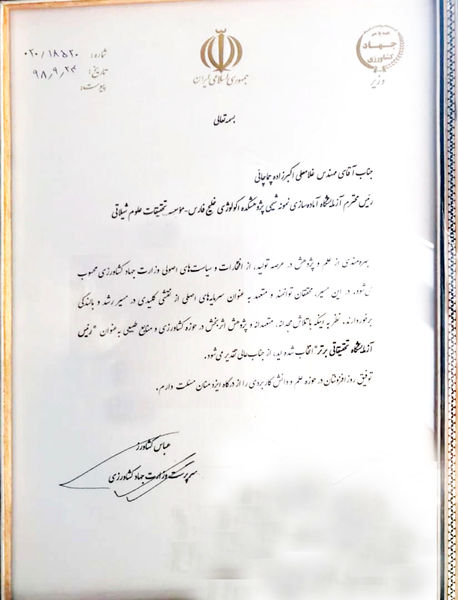 شماره: ۰۲۰/۱۸۵۲۰
تاریخ: ۹۸,۹,۲۳
پیوست:
جمهوری اسلامی ایران
جهاد
کشاورزی
وزیر
بسمه تعالی
جناب آقای مهندس غلامعلی اکبرزاده چماچائی
رئیس محترم آزمایشگاه آماده‌سازی نمونه شیمی پژوهشکده اکولوژی خلیج فارس-مؤسسه تحقیقات علوم شیلاتی
بهره‌مندی از علم و پژوهش در عرصه تولید، از افتخارات و سیاست‌های اصولی وزارت جهاد کشاورزی محسوب
می‌شود. در این مسیر، محققان توانمند و متعهد به عنوان سرمایه‌های اصلی از نقشی کلیدی در مسیر رشد و بالندگی
برخوردارند. نظر به اینکه با تلاش مجدانه، متعهدانه و پژوهش اثربخش در حوزه کشاورزی و منابع طبیعی به عنوان "رئیس
آزمایشگاه تحقیقاتی برتر" انتخاب شده‌اید، از جناب عالی تقدیر می‌شود.
توفیق روزافزونتان در حوزه علم و دانش کاربردی را از درگاه ایزد منان مسئلت دارم.
عباس کشاورز
سرپرست وزارت جهاد کشاورزی